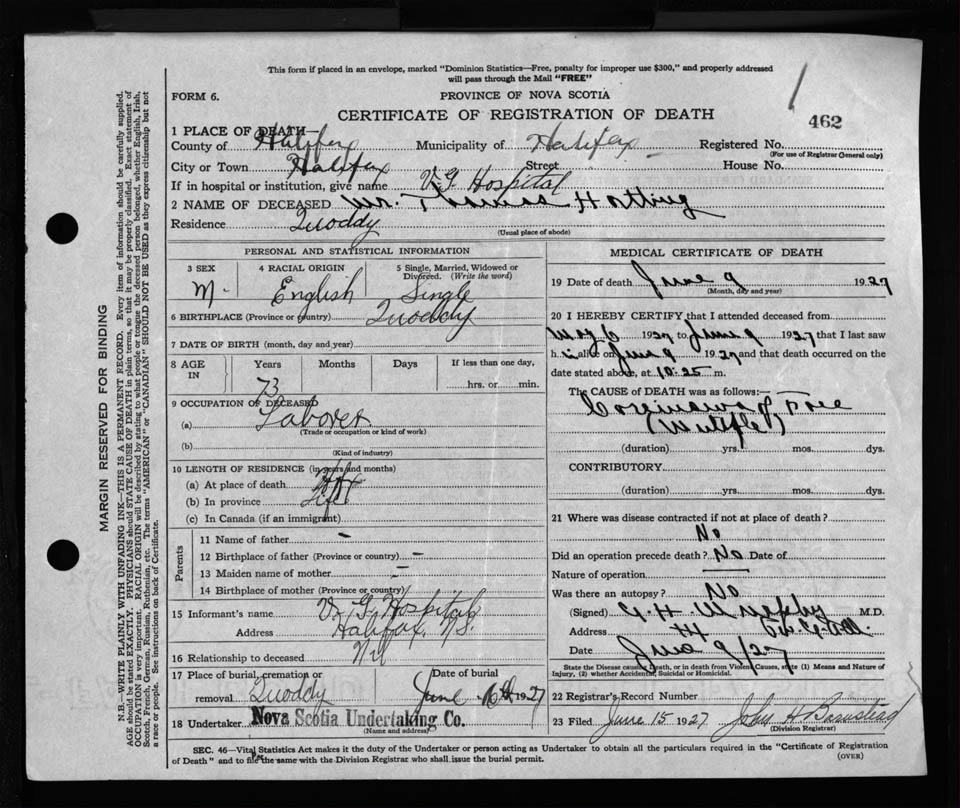 This form if placed in an envelope, marked "Dominion Statistics—Free, penalty for improper use $300," and properly addressed
will pass through the Mail "FREE"
FORM 6.
PROVINCE OF NOVA SCOTIA
CERTIFICATE OF REGISTRATION OF DEATH
462
1 PLACE OF DEATH—
County of Halifax Municipality of Halifax Registered No.
(For use of Registrar General only)
City or Town Halifax Street House No.
If in hospital or institution, give name V.G. Hospital
2 NAME OF DECEASED Mr. Thomas Hotting
Residence Quoddy
(Usual place of abode)
PERSONAL AND STATISTICAL INFORMATION
3 SEX 4 RACIAL ORIGIN 5 Single, Married, Widowed or
Divorced. (Write the word)
M. English Single
6 BIRTHPLACE (Province or country) Quoddy
7 DATE OF BIRTH (month, day and year)
8 AGE IN Years Months Days If less than one day,
73 hrs. or min.
9 OCCUPATION OF DECEASED
(a) Laborer
(Trade or occupation or kind of work)
(b)
(Kind of industry)
10 LENGTH OF RESIDENCE (in years and months)
(a) At place of death
(b) In province Life
(c) In Canada (if an immigrant)
Parents
11 Name of father -
12 Birthplace of father (Province or country) -
13 Maiden name of mother -
14 Birthplace of mother (Province or country) -
15 Informant's name V.G. Hospital
Address Halifax, N.S.
16 Relationship to deceased Nil
17 Place of burial, cremation or Date of burial
removal Quoddy June 1927
18 Undertaker Nova Scotia Undertaking Co.
(Name and address)
MEDICAL CERTIFICATE OF DEATH
19 Date of death June 9 1927
(Month, day and year)
20 I HEREBY CERTIFY that I attended deceased from
May 6 1927 to June 9 1927 that I last saw
h i alive on June 9 1927 and that death occurred on the
date stated above, at 10.25 m.
The CAUSE OF DEATH was as follows:—
Carcinoma of Face
(Multiple)
(duration) yrs. mos. dys.
CONTRIBUTORY
(duration) yrs. mos. dys.
21 Where was disease contracted if not at place of death?
No
Did an operation precede death? No Date of
Nature of operation
Was there an autopsy? No
(Signed) G. H. Murphy M.D.
Address
Date June 9/27
State the Disease causing Death, or in death from Violent Causes, state (1) Means and Nature of
Injury, (2) whether Accidental, Suicidal or Homicidal.
22 Registrar's Record Number
23 Filed June 15 1927 John H.
(Division Registrar)
SEC. 46—Vital Statistics Act makes it the duty of the Undertaker or person acting as Undertaker to obtain all the particulars required in the "Certificate of Registration
of Death" and to file the same with the Division Registrar who shall issue the burial permit.
(OVER)
MARGIN RESERVED FOR BINDING
N.B.—WRITE PLAINLY WITH UNFADING INK—THIS IS A PERMANENT RECORD. Every item of information should be carefully supplied.
AGE should be stated EXACTLY. PHYSICIANS should STATE CAUSE OF DEATH in plain terms, so that it may be properly classified. Exact statement of
OCCUPATION is very important. RACIAL ORIGIN will be described by stating to what people or tongue the deceased person belonged, whether English, Irish,
Scotch, French, German, Russian, Ruthenian, etc. The terms "AMERICAN" or "CANADIAN" SHOULD NOT BE USED as they express citizenship but not
a race or people. See instructions on back of Certificate.